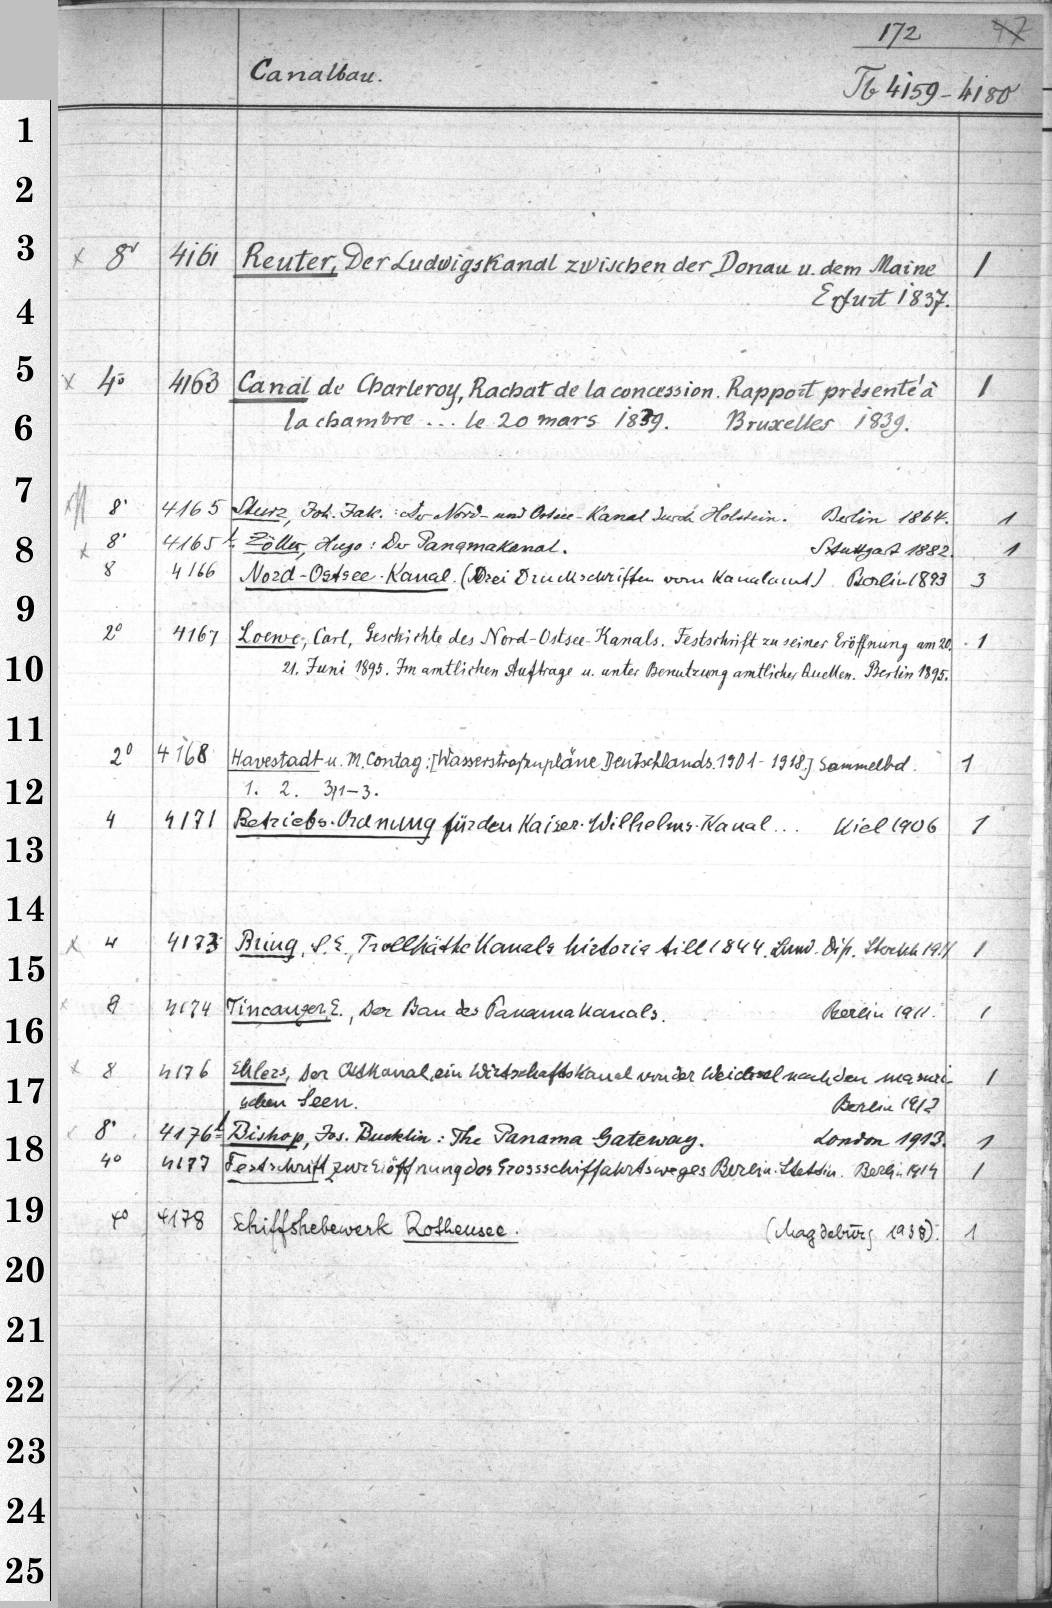 172 47
Canalbau.
Tb 4159-4180
1
2
3 x 8° 4161 Reuter, Der Ludwigskanal zwischen der Donau u. dem Maine 1
4 Erfurt 1837.
5 x 4° 4163 Canal de Charleroy, Rachat de la concession. Rapport présenté à 1
6 la chambre ... le 20 mars 1839. Bruxelles 1839.
7 8° 4165 Sturz, Joh. Jak.: Der Nord- und Ostsee-Kanal durch Holstein. Berlin 1864. 1
8 x 8° 4165b Zöller, Hugo: Der Panamakanal. Stuttgart 1882. 1
8 4166 Nord-Ostsee-Kanal. (Drei Druckschriften vom Kanalamt) Berlin 1893 3
9 2° 4167 Loewe, Carl, Geschichte des Nord-Ostsee-Kanals. Festschrift zu seiner Eröffnung am 20. 1
10 21. Juni 1895. Im amtlichen Auftrage u. unter Benutzung amtlicher Quellen. Berlin 1895.
11 2° 4168 Havestadt u. M. Contag: [Wasserstraßenpläne Deutschlands. 1901-1918.] Sammelbd. 1
12 1. 2. 3,1-3.
4 4171 Betriebs-Ordnung für den Kaiser-Wilhelms-Kanal ... Kiel 1906 1
13
14
x 4 4173 Bring, S. E., Trollhätte Kanals historia till 1844. Lund. Diss. Stockh 1911 1
15
x 8 4174 Tincauzer, E., Der Bau des Panamakanals. Berlin 1911. 1
16
x 8 4176 Ehlers, Der Ostkanal, ein Wirtschaftskanal von der Weichsel nach den masuri- 1
17 schen Seen. Berlin 1912
x 8° 4176b Bishop, Jos. Bucklin: The Panama Gateway. London 1913. 1
18 4° 4177 Festschrift zur Eröffnung des Grossschiffahrtsweges Berlin-Stettin. Berlin 1914 1
19 4° 4178 Schiffshebewerk Rothensee. (Magdeburg 1938). 1
20
21
22
23
24
25